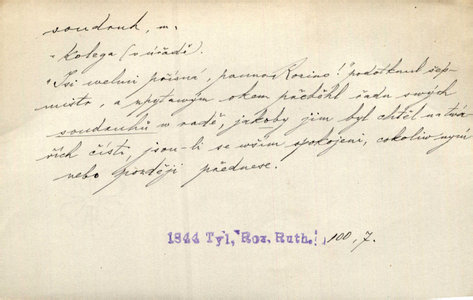 soudruh, m.
= kolega (v úřadě).
"Jsi welmi přísna, panno Rozino!" podotknul šep-
mistr, a zpytawým okem přeběhl řadu swých
soudruhů w radě, jakoby jim byl chtěl na twá-
řích čísti, jsou-li se wším spokojeni, cokoliw nyní
nebo později přednese.
1844 Tyl, "Roz. Ruth.", 100, 7.